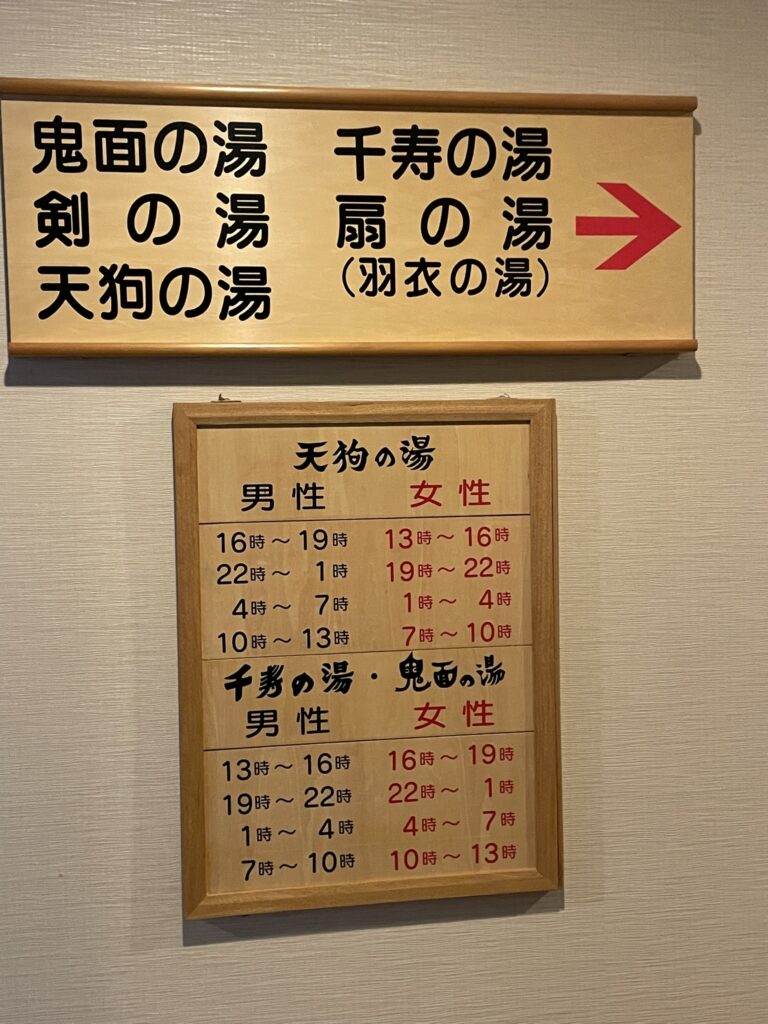 鬼面の湯 千寿の湯
剣の湯 扇の湯
天狗の湯 (羽衣の湯)
天狗の湯
男性 女性
16時～19時 13時～16時
22時～1時 19時～22時
4時～7時 1時～4時
10時～13時 7時～10時
千寿の湯・鬼面の湯
男性 女性
13時～16時 16時～19時
19時～22時 22時～1時
1時～4時 4時～7時
7時～10時 10時～13時